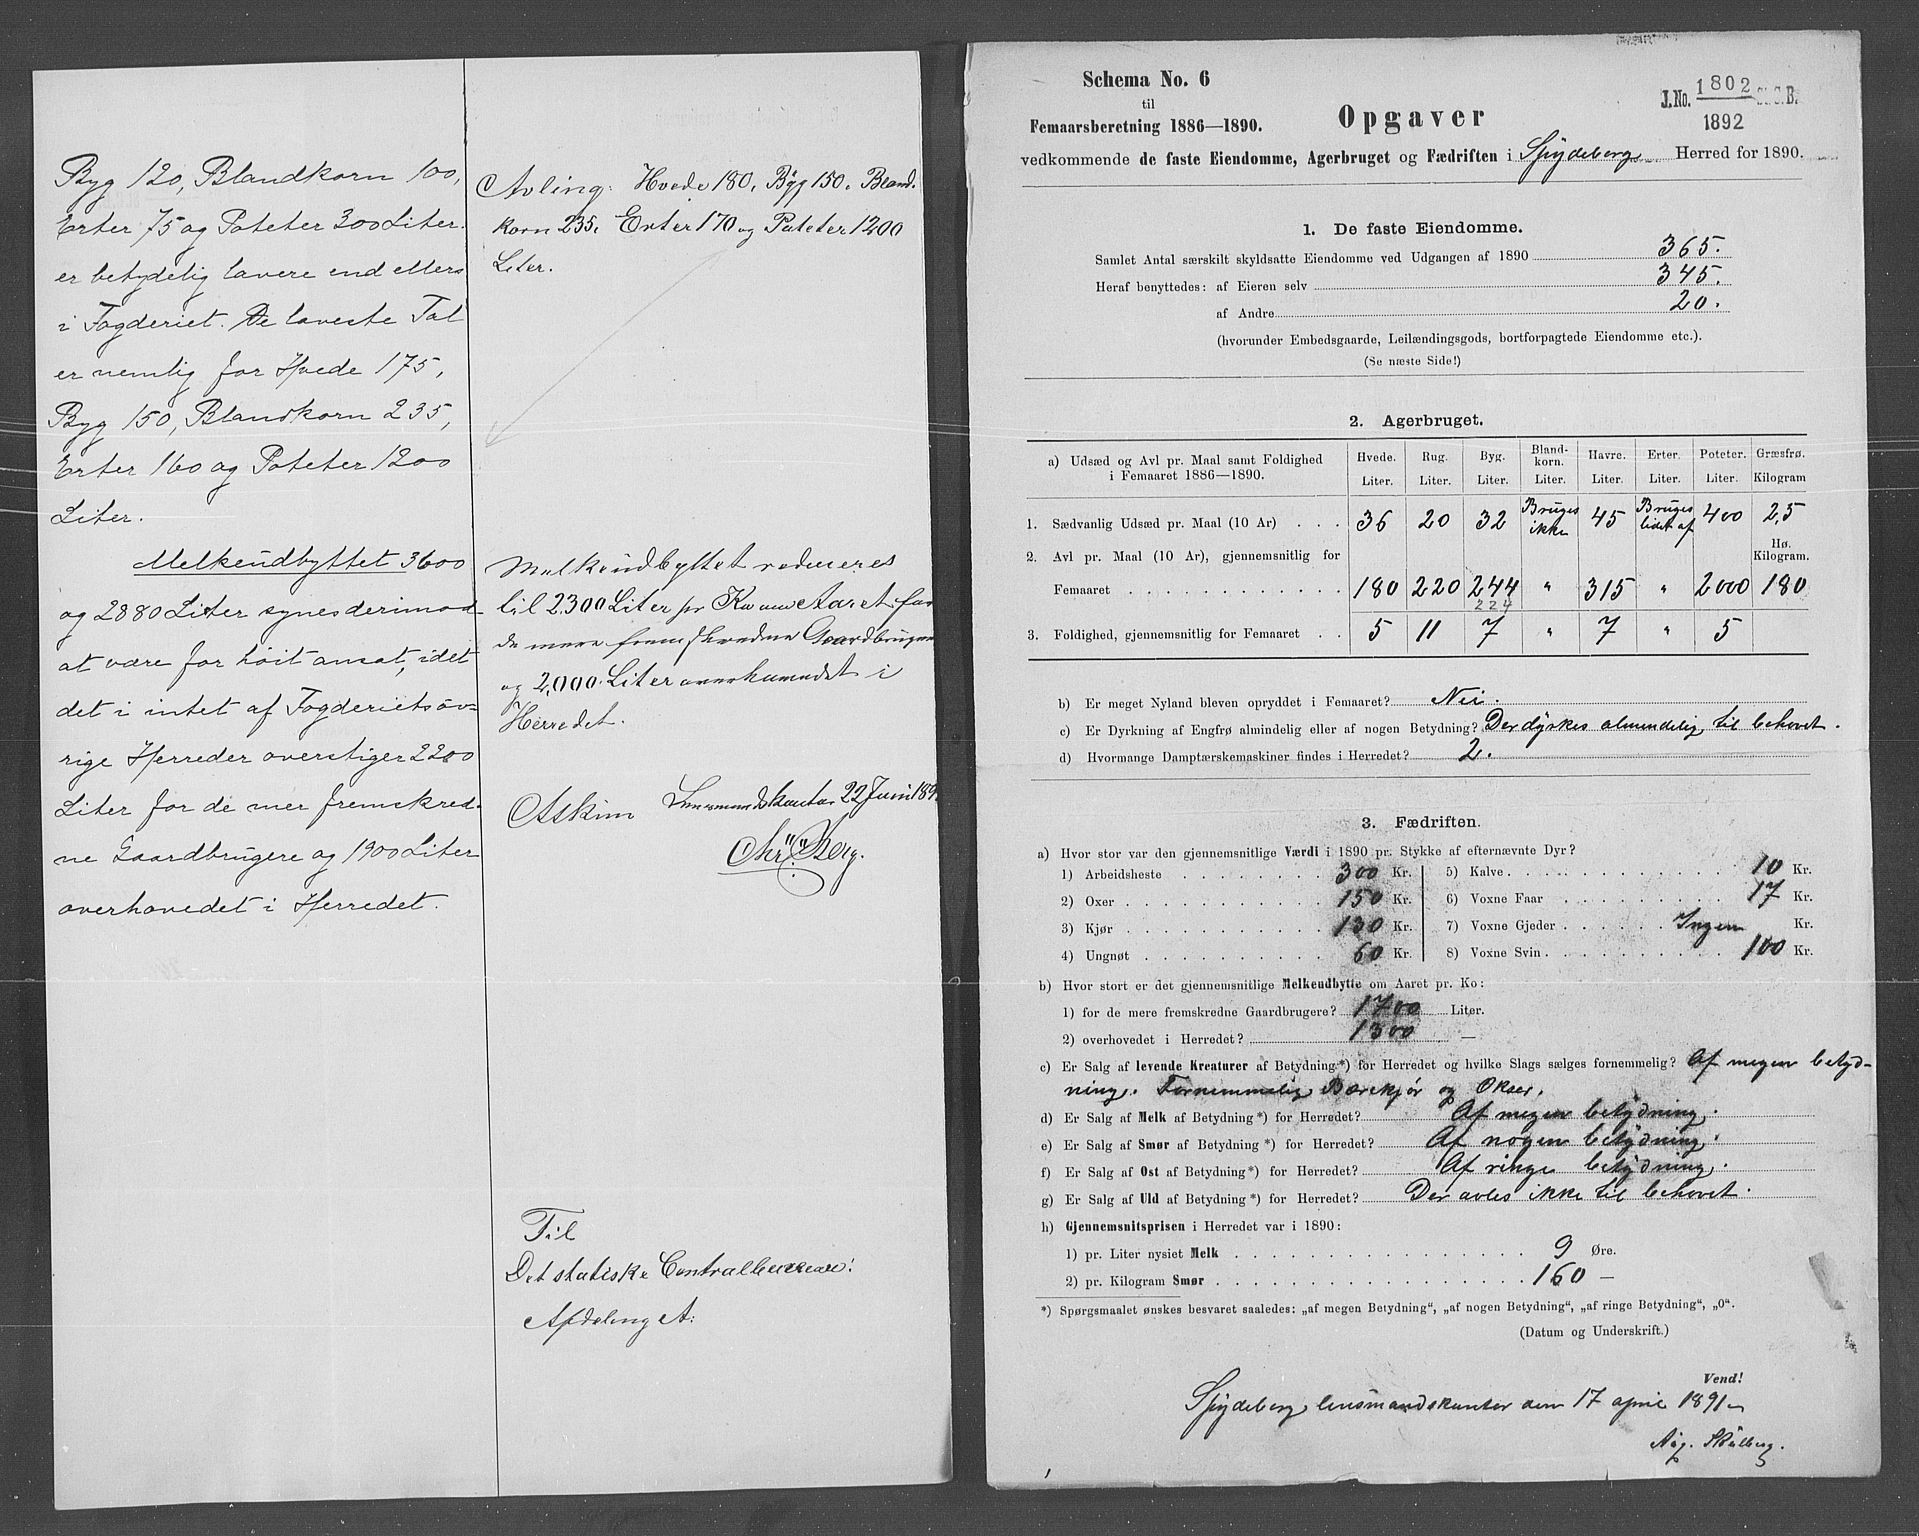 Byg 120, Blandkorn 100,
Erter 75 og Poteter 300 Liter
er betydelig lavere end ellers
i Fogderiet. De laveste Tal
er nemlig for Hvede 175,
Byg 150, Blandkorn 235,
Erter 160 og Poteter 1200
Liter.
Melkeudbyttet 3600
og 2880 Liter synes derimod
at være for høit ansat, idet
det i intet af Fogderiets øv-
rige Herreder overstiger 2200
Liter for de mer fremskred-
ne Gaardbrugere og 1900 Liter
overhovedet i Herredet.
Avling: Hvede 180, Byg 150, Bland-
korn 235, Erter 170 og Poteter 1200
Liter.
Melkeudbyttet reduceres
til 2300 Liter pr Ko om Aaret for
de mere fremskredne Gaardbrugere
og 2,000 Liter overhovedet i
Herredet.
Askim Lensmandskontor 22 Juni 189
Chr. Berg.
Til
Det statiske Centralbureau!
Afdeling A:
Schema No. 6
til
Femaarsberetning 1886—1890.
Opgaver
J.No. 1802 St.C.B.
1892
vedkommende de faste Eiendomme, Agerbruget og Fædriften i Spydeberg Herred for 1890.
1. De faste Eiendomme.
Samlet Antal særskilt skyldsatte Eiendomme ved Udgangen af 1890 365.
Heraf benyttedes: af Eieren selv 345.
af Andre 20.
(hvorunder Embedsgaarde, Leilændingsgods, bortforpagtede Eiendomme etc.).
(Se næste Side!)
2. Agerbruget.
a) Udsæd og Avl pr. Maal samt Foldighed i Femaaret 1886—1890. Hvede. Rug. Byg. Bland-korn. Havre. Erter. Poteter. Græsfrø.
Liter. Liter. Liter. Liter. Liter. Liter. Liter. Kilogram
1. Sædvanlig Udsæd pr. Maal (10 Ar) . . . 36 20 32 Bruges ikke 45 Bruges lidet af 400 2,5
2. Avl pr. Maal (10 Ar), gjennemsnitlig for Hø. Kilogram.
Femaaret . . . 180 220 244 „ 315 „ 2000 180
224
3. Foldighed, gjennemsnitlig for Femaaret . . 5 11 7 „ 7 „ 5
b) Er meget Nyland bleven opryddet i Femaaret? Nei.
c) Er Dyrkning af Engfrø almindelig eller af nogen Betydning? Der dyrkes almindelig til behovet.
d) Hvormange Damptærskemaskiner findes i Herredet? 2.
3. Fædriften.
a) Hvor stor var den gjennemsnitlige Værdi i 1890 pr. Stykke af efternævnte Dyr?
1) Arbeidsheste . . . 300 Kr. 5) Kalve . . . 10 Kr.
2) Oxer . . . 150 Kr. 6) Voxne Faar . . . 17 Kr.
3) Kjør . . . 130 Kr. 7) Voxne Gjeder . . . Ingen Kr.
4) Ungnøt . . . 60 Kr. 8) Voxne Svin . . . 100 Kr.
b) Hvor stort er det gjennemsnitlige Melkeudbytte om Aaret pr. Ko:
1) for de mere fremskredne Gaardbrugere? 1700 Liter.
2) overhovedet i Herredet? 1300 —
c) Er Salg af levende Kreaturer af Betydning*) for Herredet og hvilke Slags sælges fornemmelig? Af megen betyd-
ning. Fornemmelig Bærekjør og Okser.
d) Er Salg af Melk af Betydning*) for Herredet? Af megen betydning.
e) Er Salg af Smør af Betydning*) for Herredet? Af nogen betydning.
f) Er Salg af Ost af Betydning*) for Herredet? Af ringe betydning.
g) Er Salg af Uld af Betydning*) for Herredet? Der avles ikke til behovet.
h) Gjennemsnitsprisen i Herredet var i 1890:
1) pr. Liter nysiet Melk . . . 9 Øre.
2) pr. Kilogram Smør . . . 160 —
*) Spørgsmaalet ønskes besvaret saaledes: „af megen Betydning“, „af nogen Betydning“, „af ringe Betydning“, „0“.
(Datum og Underskrift.)
Vend!
Spydeberg lensmandskontor den 17 april 1891
Aug. Skulberg.